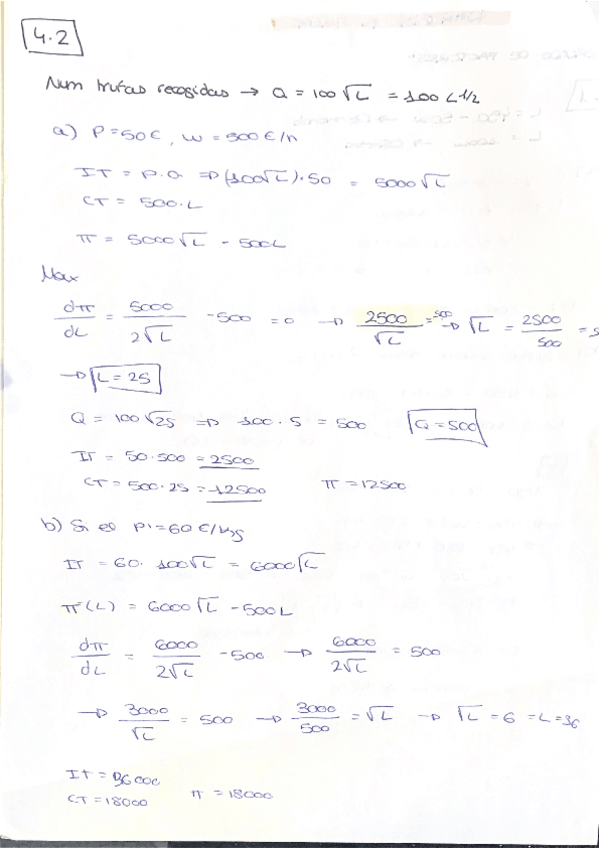 4.2
Num trufas recogidas → Q = 100√L = 100 L^1/2
a) P = 50€, w = 500 €/h
IT = P.Q. => (100√L).50 = 5000√L
CT = 500.L
π = 5000√L - 500L
Max
dπ/dL = 5000/2√L - 500 = 0 → 2500/√L = 500 → √L = 2500/500 = 5
→ L = 25
Q = 100√25 => 100 . 5 = 500 Q = 500
IT = 50.500 = 2500
CT = 500.25 = 12500 π = 12500
b) Si el P' = 60€/kg
IT = 60. 100√L = 6000√L
π(L) = 6000√L - 500L
dπ/dL = 6000/2√L - 500 → 6000/2√L = 500
→ 3000/√L = 500 → 3000/500 = √L → √L = 6 = L = 36
IT = 36000
CT = 18000 π = 18000